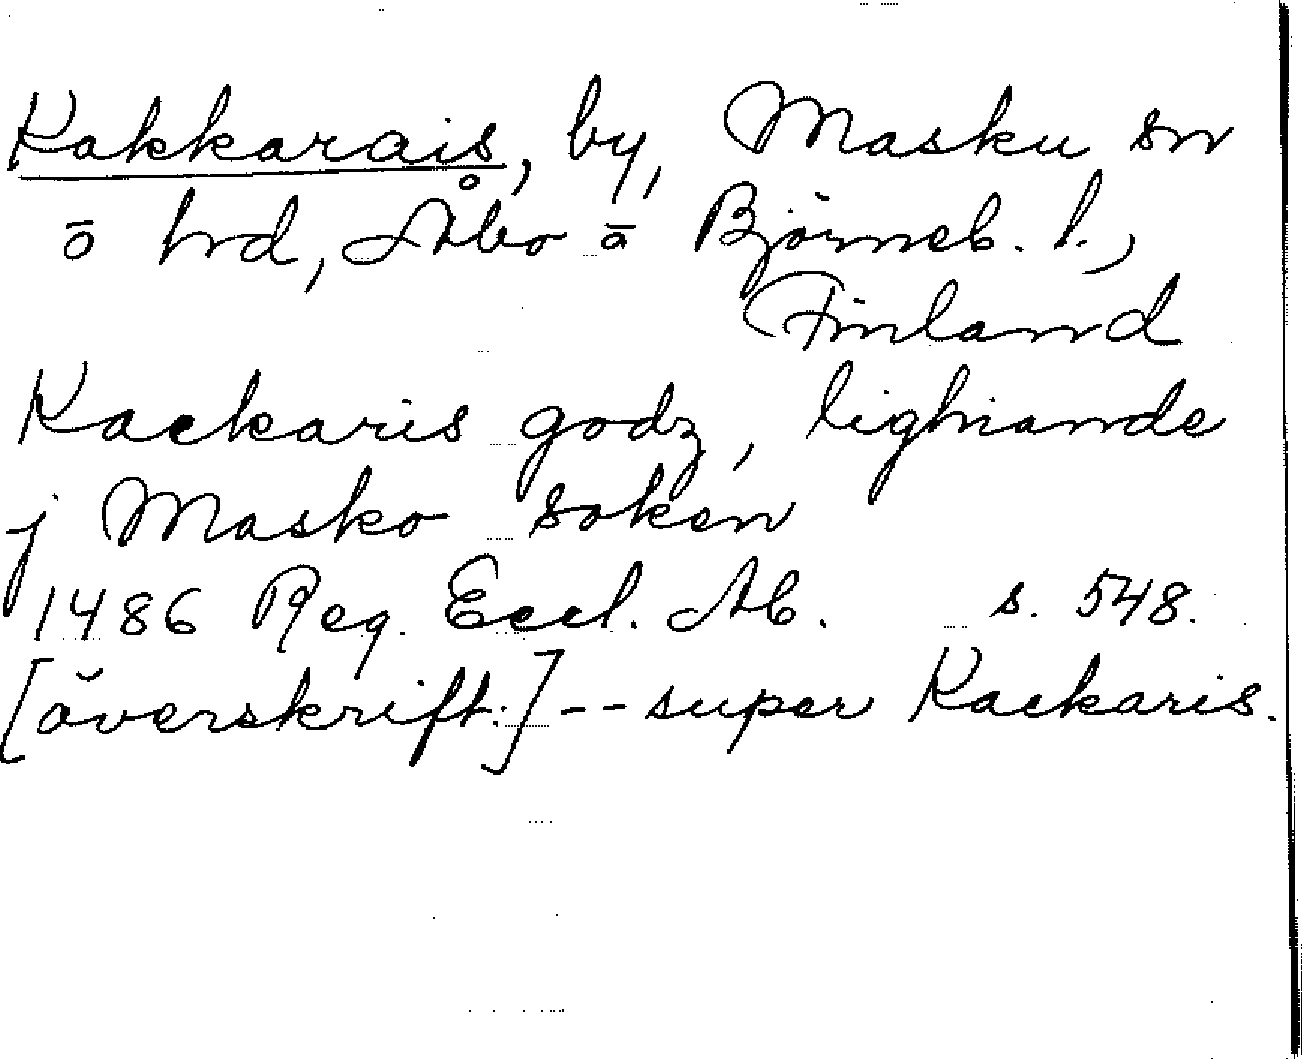 Kakkarais, by, Masku sn
ō hrd, Åbo ō Björneb. l.,
Finland
Kackaris godz, lighiande
j Masko soken
1486 Reg. Eccl. Ab. s. 548.
[överskrift:] -- super Kackaris.